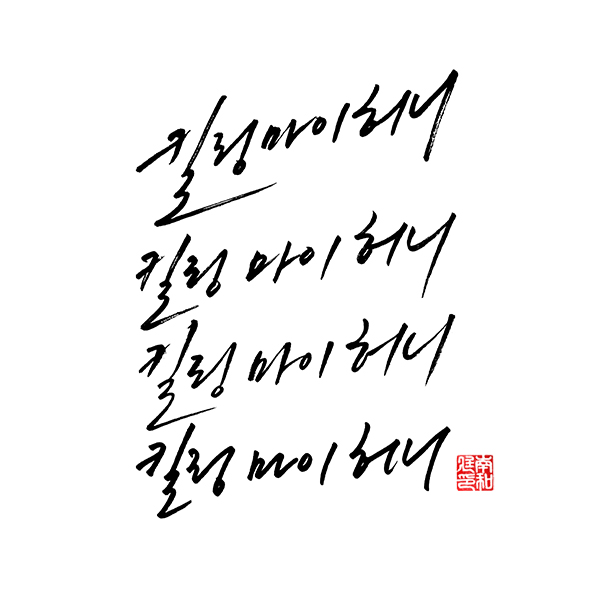 킬링 마이 허니
킬링 마이 허니
킬링 마이 허니
킬링 마이 허니